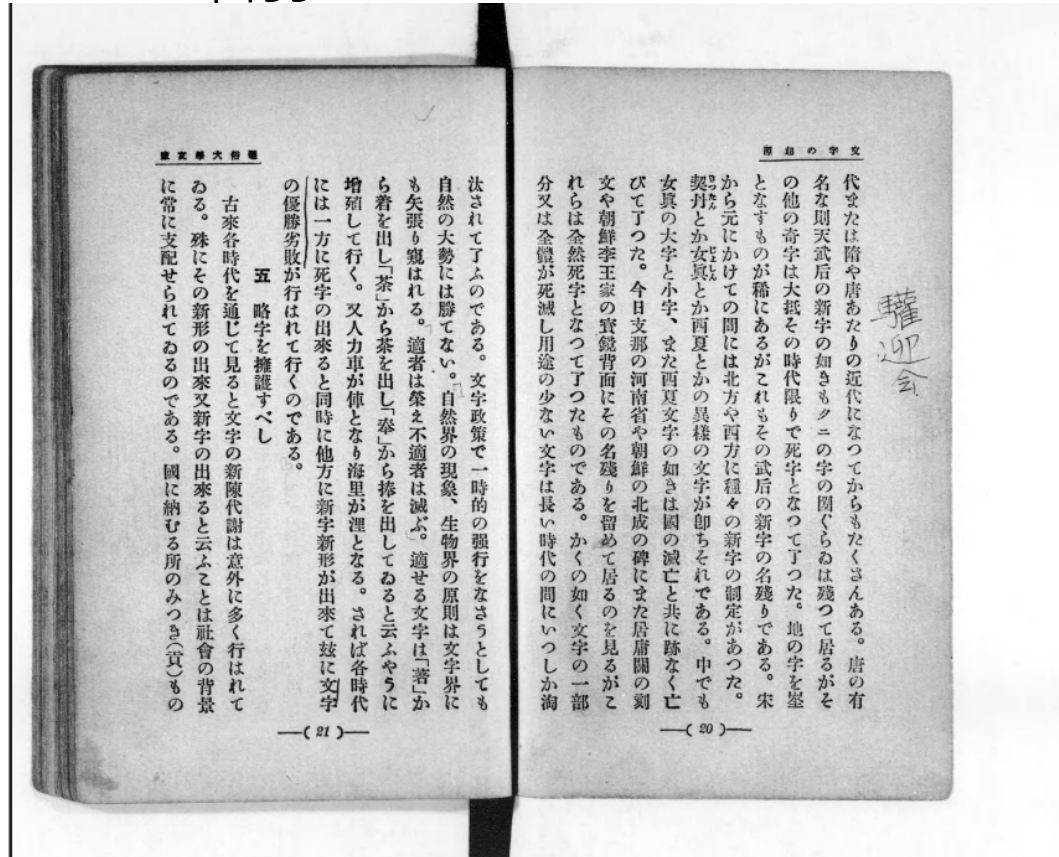 文字の起原
代または隋や唐あたりの近代になつてからもたくさんある。唐の有
名な則天武后の新字の如きもクニの字の圀ぐらゐは殘つて居るがそ
の他の奇字は大抵その時代限りで死字となつて了つた。地の字を埊
となすものが稀にあるがこれもその武后の新字の名殘りである。宋
から元にかけての間には北方や西方に種々の新字の制定があつた。
契丹とか女眞とか西夏とかの異樣の文字が卽ちそれである。中でも
女眞の大字と小字、また西夏文字の如きは國の滅亡と共に跡なく亡
びて了つた。今日支那の河南省や朝鮮の北咸の碑にまた居庸關の刻
文や朝鮮李王家の寳鏡背面にその名殘りを留めて居るのを見るがこ
れらは全然死字となつて了つたものである。かくの如く文字の一部
分又は全體が死滅し用途の少ない文字は長い時代の間にいつしか淘
—( 20 )—
驩迎会
汰されて了ふのである。文字政策で一時的の强行をなさうとしても
自然の大勢には勝てない。自然界の現象、生物界の原則は文字界に
も矢張り窺はれる。適者は榮え不適者は滅ぶ。適せる文字は「著」か
ら着を出し「荼」から茶を出し「奉」から捧を出してゐると云ふやうに
增殖して行く。又人力車が俥となり海里が浬となる。されば各時代
には一方に死字の出來ると同時に他方に新字新形が出來て玆に文字
の優勝劣敗が行はれて行くのである。
五　略字を擁護すべし
古來各時代を通じて見ると文字の新陳代謝は意外に多く行はれて
ゐる。殊にその新形の出來又新字の出來ると云ふことは社會の背景
に常に支配せられてゐるのである。國に納むる所のみつき(貢)もの
—( 21 )—